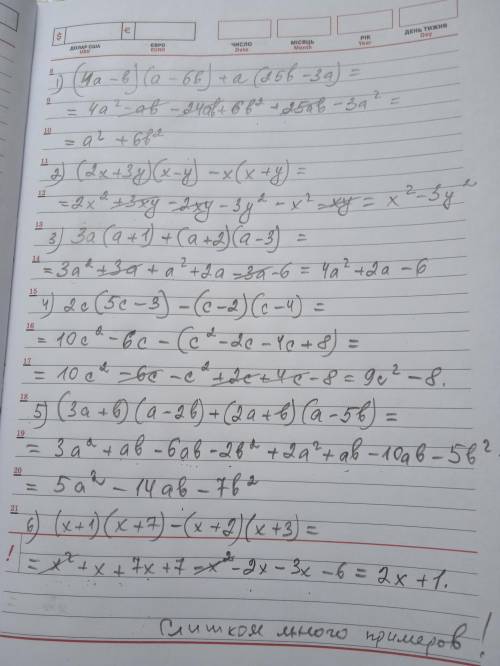 $ €
ДОЛАР США ЄВРО ЧИСЛО МІСЯЦЬ РІК ДЕНЬ ТИЖНЯ
USD EURO Date Month Year Day
8
1) (4a-b)(a-6b)+a(25b-3a)=
9
=4a²-ab-24ab+6b²+25ab-3a²=
10
=a²+6b²
11
2) (2x+3y)(x-y)-x(x+y)=
12
=2x²+3xy-2xy-3y²-x²-xy=x²-3y²
13
3) 3a(a+1)+(a+2)(a-3)=
14
=3a²+3a+a²+2a-3a-6=4a²+2a-6
15
4) 2c(5c-3)-(c-2)(c-4)=
16
=10c²-6c-(c²-2c-4c+8)=
17
=10c²-6c-c²+2c+4c-8=9c²-8.
18
5) (3a+b)(a-2b)+(2a+b)(a-5b)=
19
=3a²+ab-6ab-2b²+2a²+ab-10ab-5b²
20
=5a²-14ab-7b²
21
6) (x+1)(x+7)-(x+2)(x+3)=
!
=x²+x+7x+7-x²-2x-3x-6=2x+1.
Слишком много примеров!